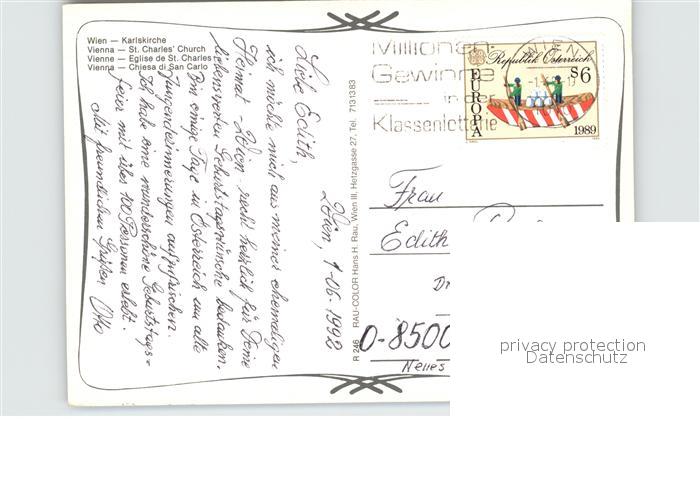 Wien — Karlskirche
Vienna — St. Charles' Church
Vienne — Eglise de St. Charles
Vienna — Chiesa di San Carlo
Wien, 1-06.1992
Liebe Edith,
ich möchte mich aus meiner ehemaligen
Heimat - Wien recht herzlich für Deine
liebenswerten Geburtstagswünsche bedanken.
Bin einige Tage in Österreich um alte
Jugenderinnerungen aufzufrischen.
Ich habe eine wunderschöne Geburtstags=
feier mit über 100 Personen erlebt.
Mit freundlichen Grüßen Otto
R 246 RAU-COLOR Hans H. Rau, Wien III, Hetzgasse 27, Tel. 7131383
Millionen-
Gewinne
in der
Klassenlotterie
WIEN
Republik Österreich
EUROPA
S6
1989
Frau
Edith
D-8500
Neues
privacy protection
Datenschutz